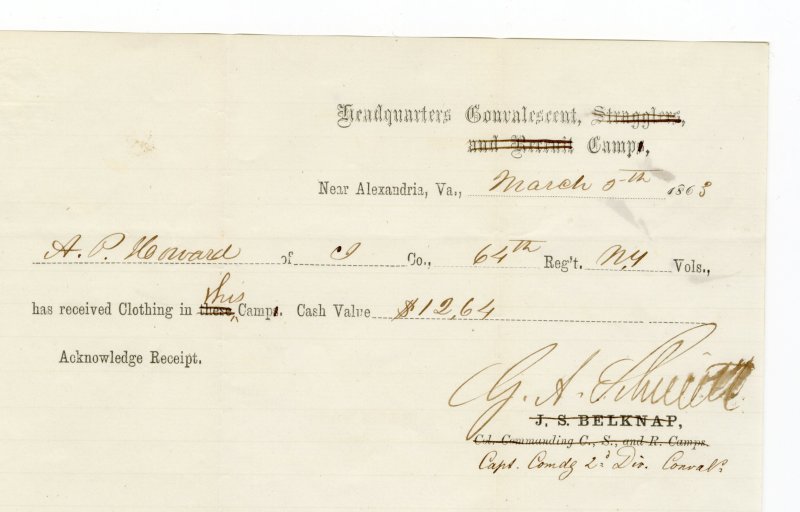 Headquarters Convalescent, Stragglers,
and Recruit Camps,
Near Alexandria, Va., March 5th 1863
A. P. Howard of I Co., 64th Reg't. N.Y Vols.,
has received Clothing in these this Camps. Cash Value $12,64
Acknowledge Receipt.
G. A.
J. S. BELKNAP,
Col. Commanding C., S., and R. Camps.
Capt. Comdg 2d Div. Conval.